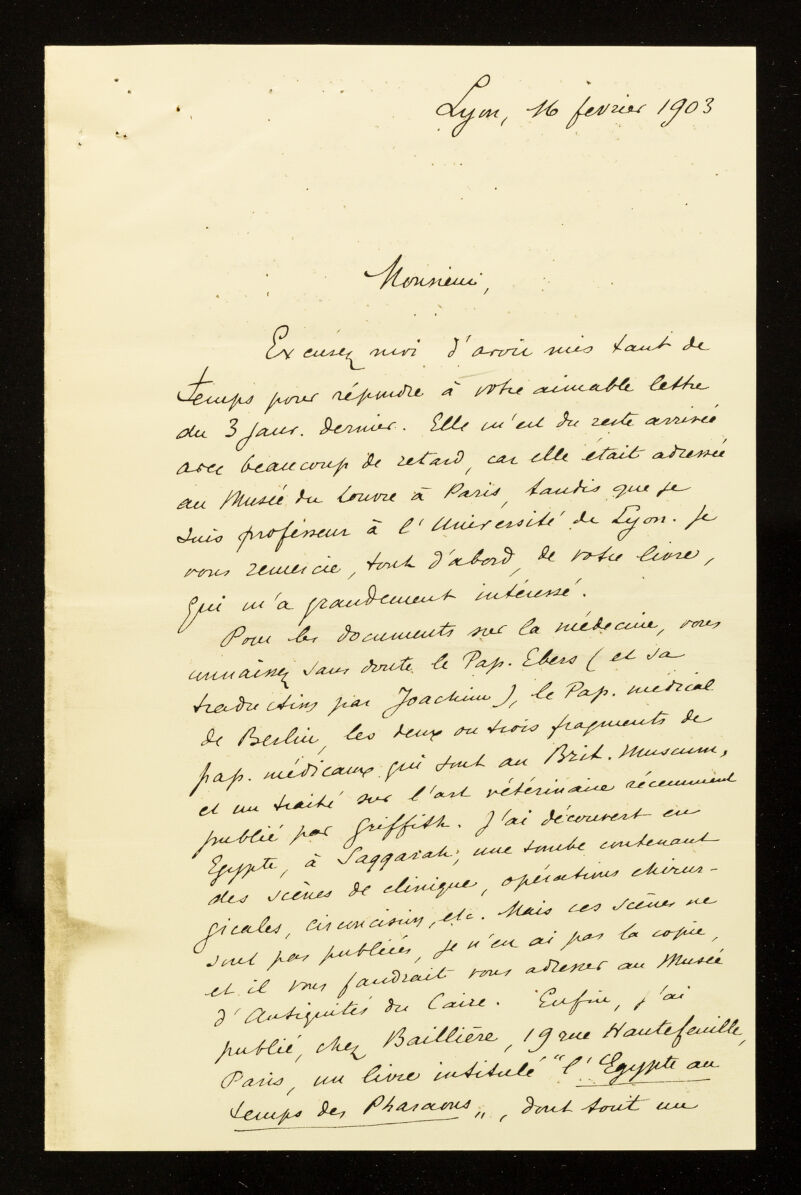 Lyon, 16 fevrier 1903
Monsieur,
Excusez moi d'avoir mis tant de
temps pour répondre à votre aimable lettre
du 3 janv. dernier. Elle m'est du reste arrivée
avec beaucoup de retard, car elle était adressée
au Musée du Louvre à Paris, tandis que je
suis professeur à l'Université de Lyon. Je
vous remercie, tout d'abord, de votre livre,
qui m'a grandement intéressé.
Pour les documents sur la médecine, vous
connaissez sans doute le Pap. Ebers (et sa
traduction par Joachim), le Pap. médical
de Berlin, les deux ou trois fragments de
pap. médicaux qui sont au Brit. Museum,
et un traité sur l'art vétérinaire récemment
publié par Griffith. J'ai découvert en
Egypte, à Saqqarah, une tombe contenant
des scènes de clinique, opérations chirur-
gicales, circoncision, etc. Mais ces scènes ne
sont pas publiées, je n'en ai pas la copie,
et il vous faudrait vous adresser au Musée
d'Antiquités du Caire. Enfin, j'ai
publié, chez Baillière, 19 rue Hautefeuille,
Paris, un livre intitulé "l'Egypte au
temps des Pharaons", dont tout un